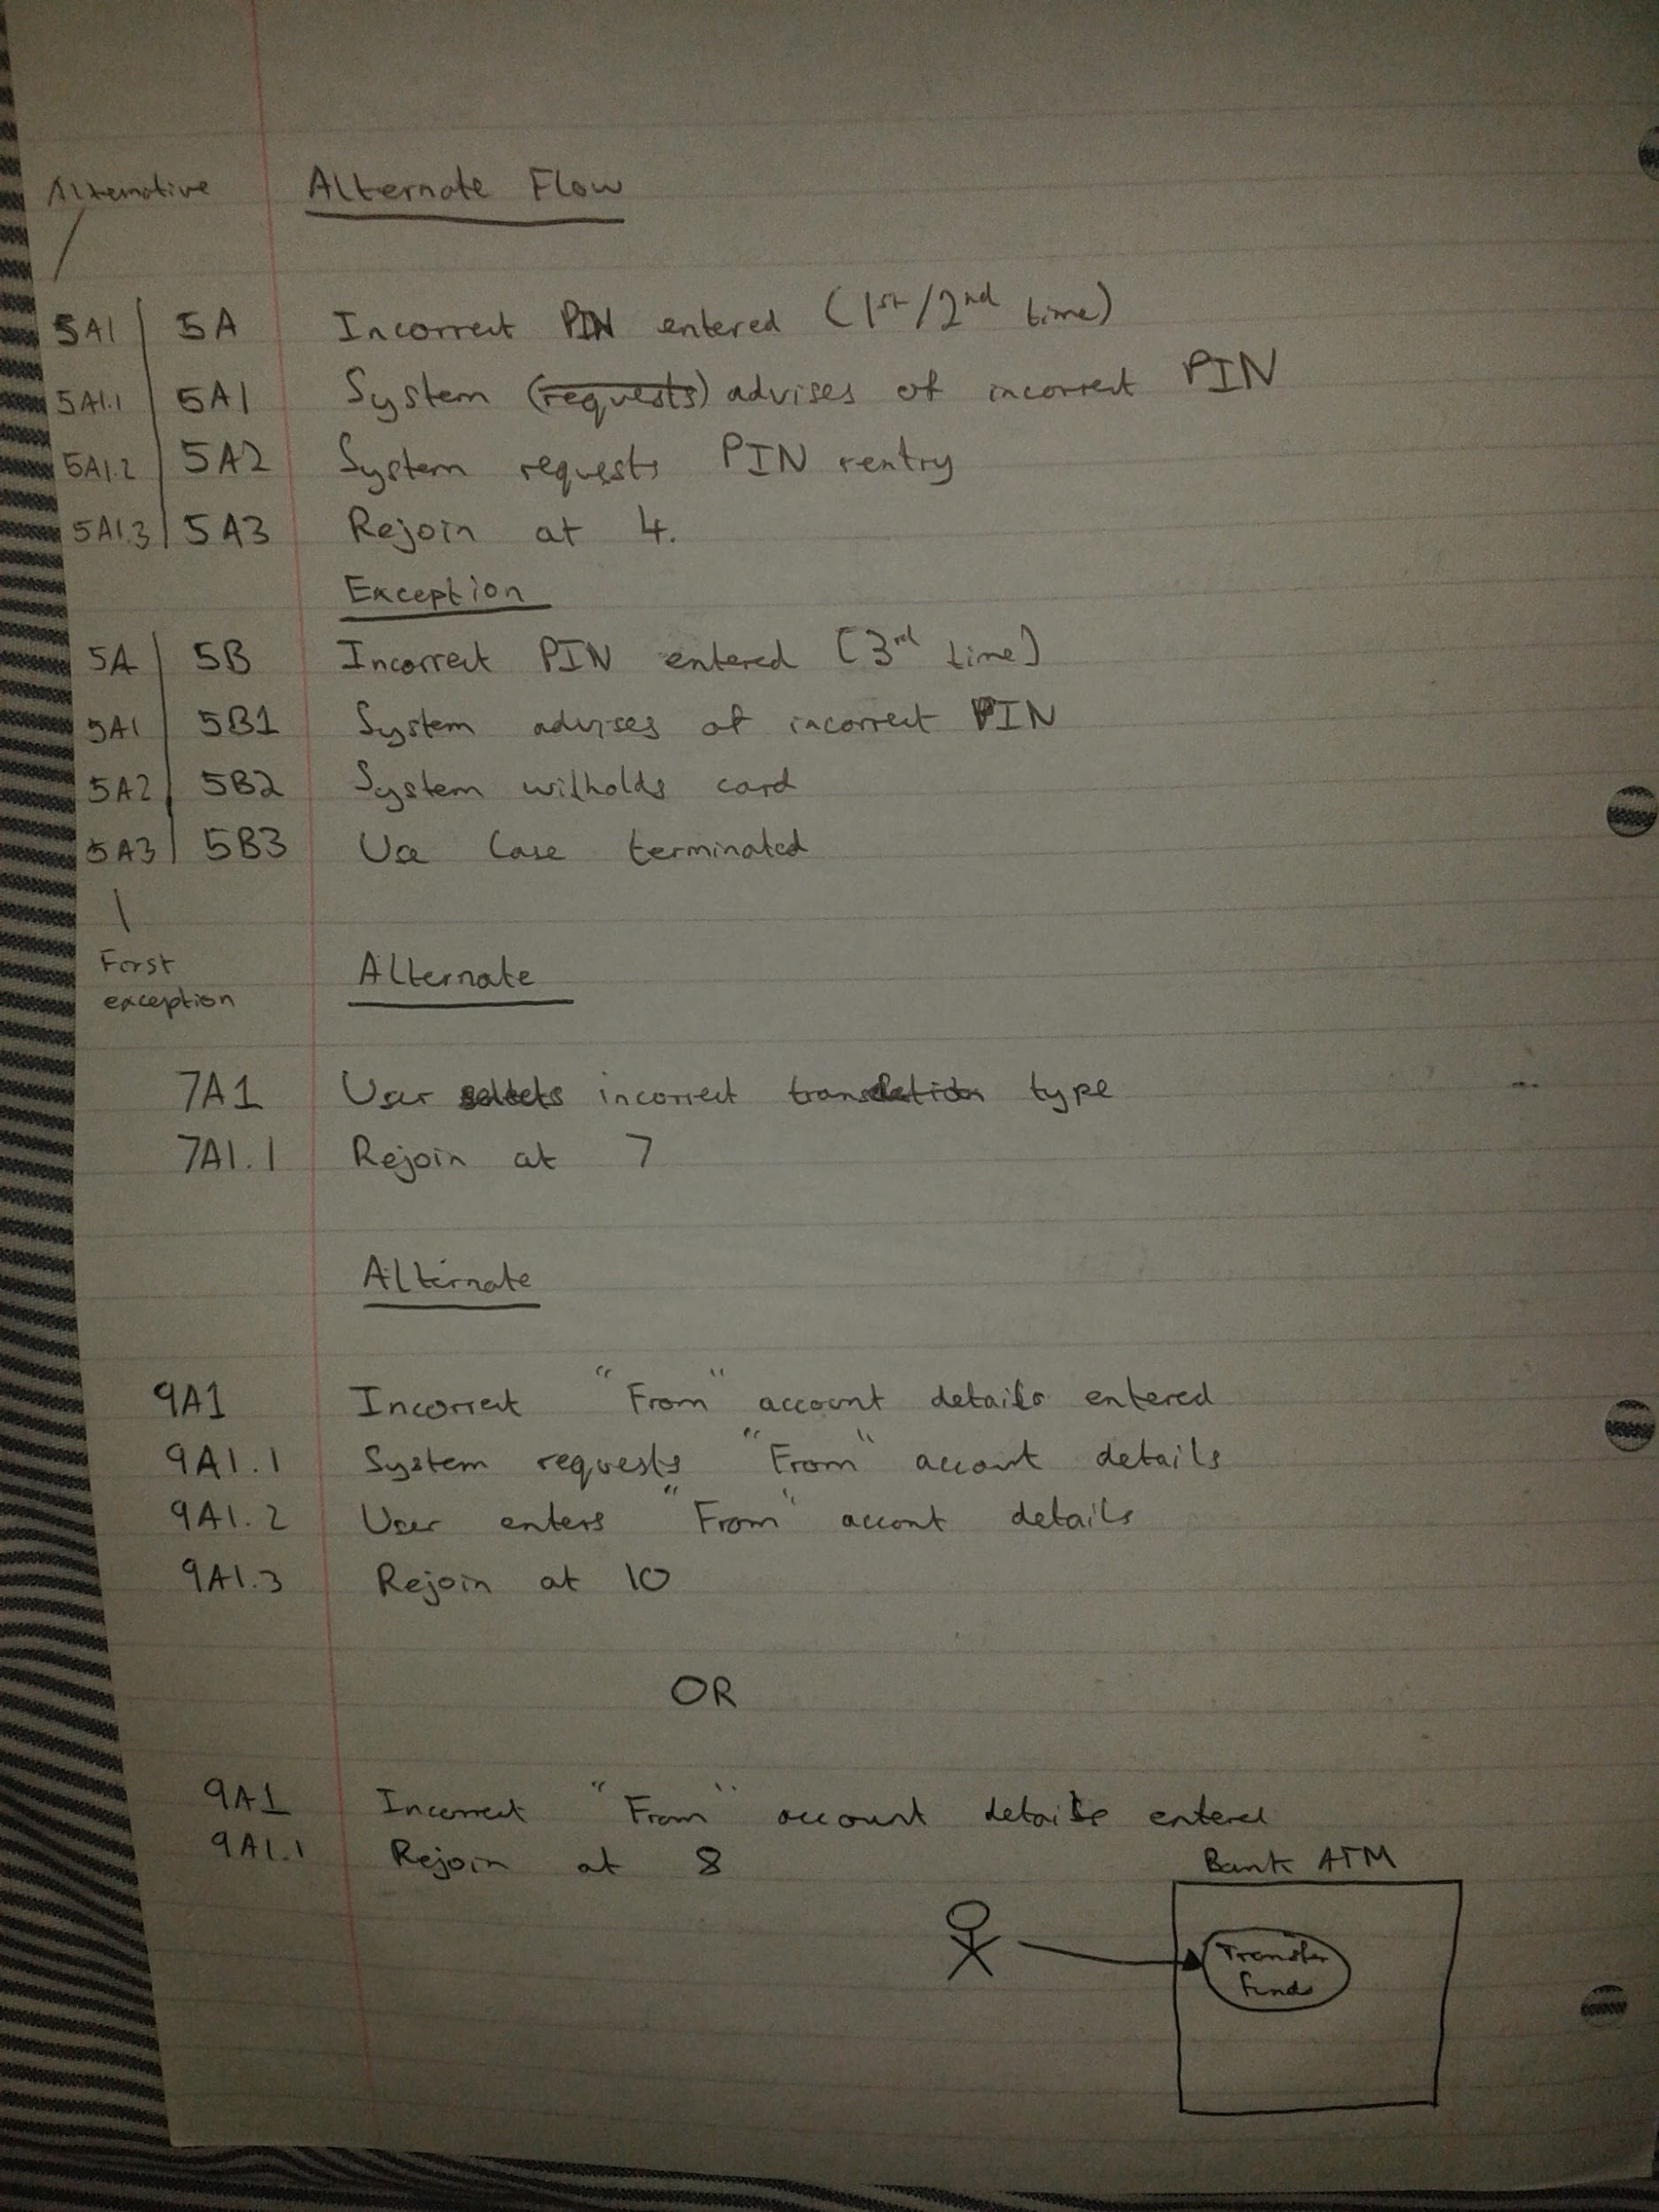 Alternative Alternate Flow
5A1 5A Incorrect PIN entered (1st/2nd time)
5A1.1 5A1 System (requests) advises of incorrect PIN
5A1.2 5A2 System requests PIN rentry
5A1.3 5A3 Rejoin at 4.
Exception
5A 5B Incorrect PIN entered (3rd time)
5A1 5B1 System advises of incorrect PIN
5A2 5B2 System witholds card
5A3 5B3 Use Case terminated
First
exception
Alternate
7A1 User selects incorrect type
7A1.1 Rejoin at 7
Alternate
9A1 Incorrect "From" account details entered
9A1.1 System requests "From" account details
9A1.2 User enters "From" accont details
9A1.3 Rejoin at 10
OR
9A1 Incorrect "From" account details entered
9A1.1 Rejoin at 8
Bank ATM
Transfer
funds